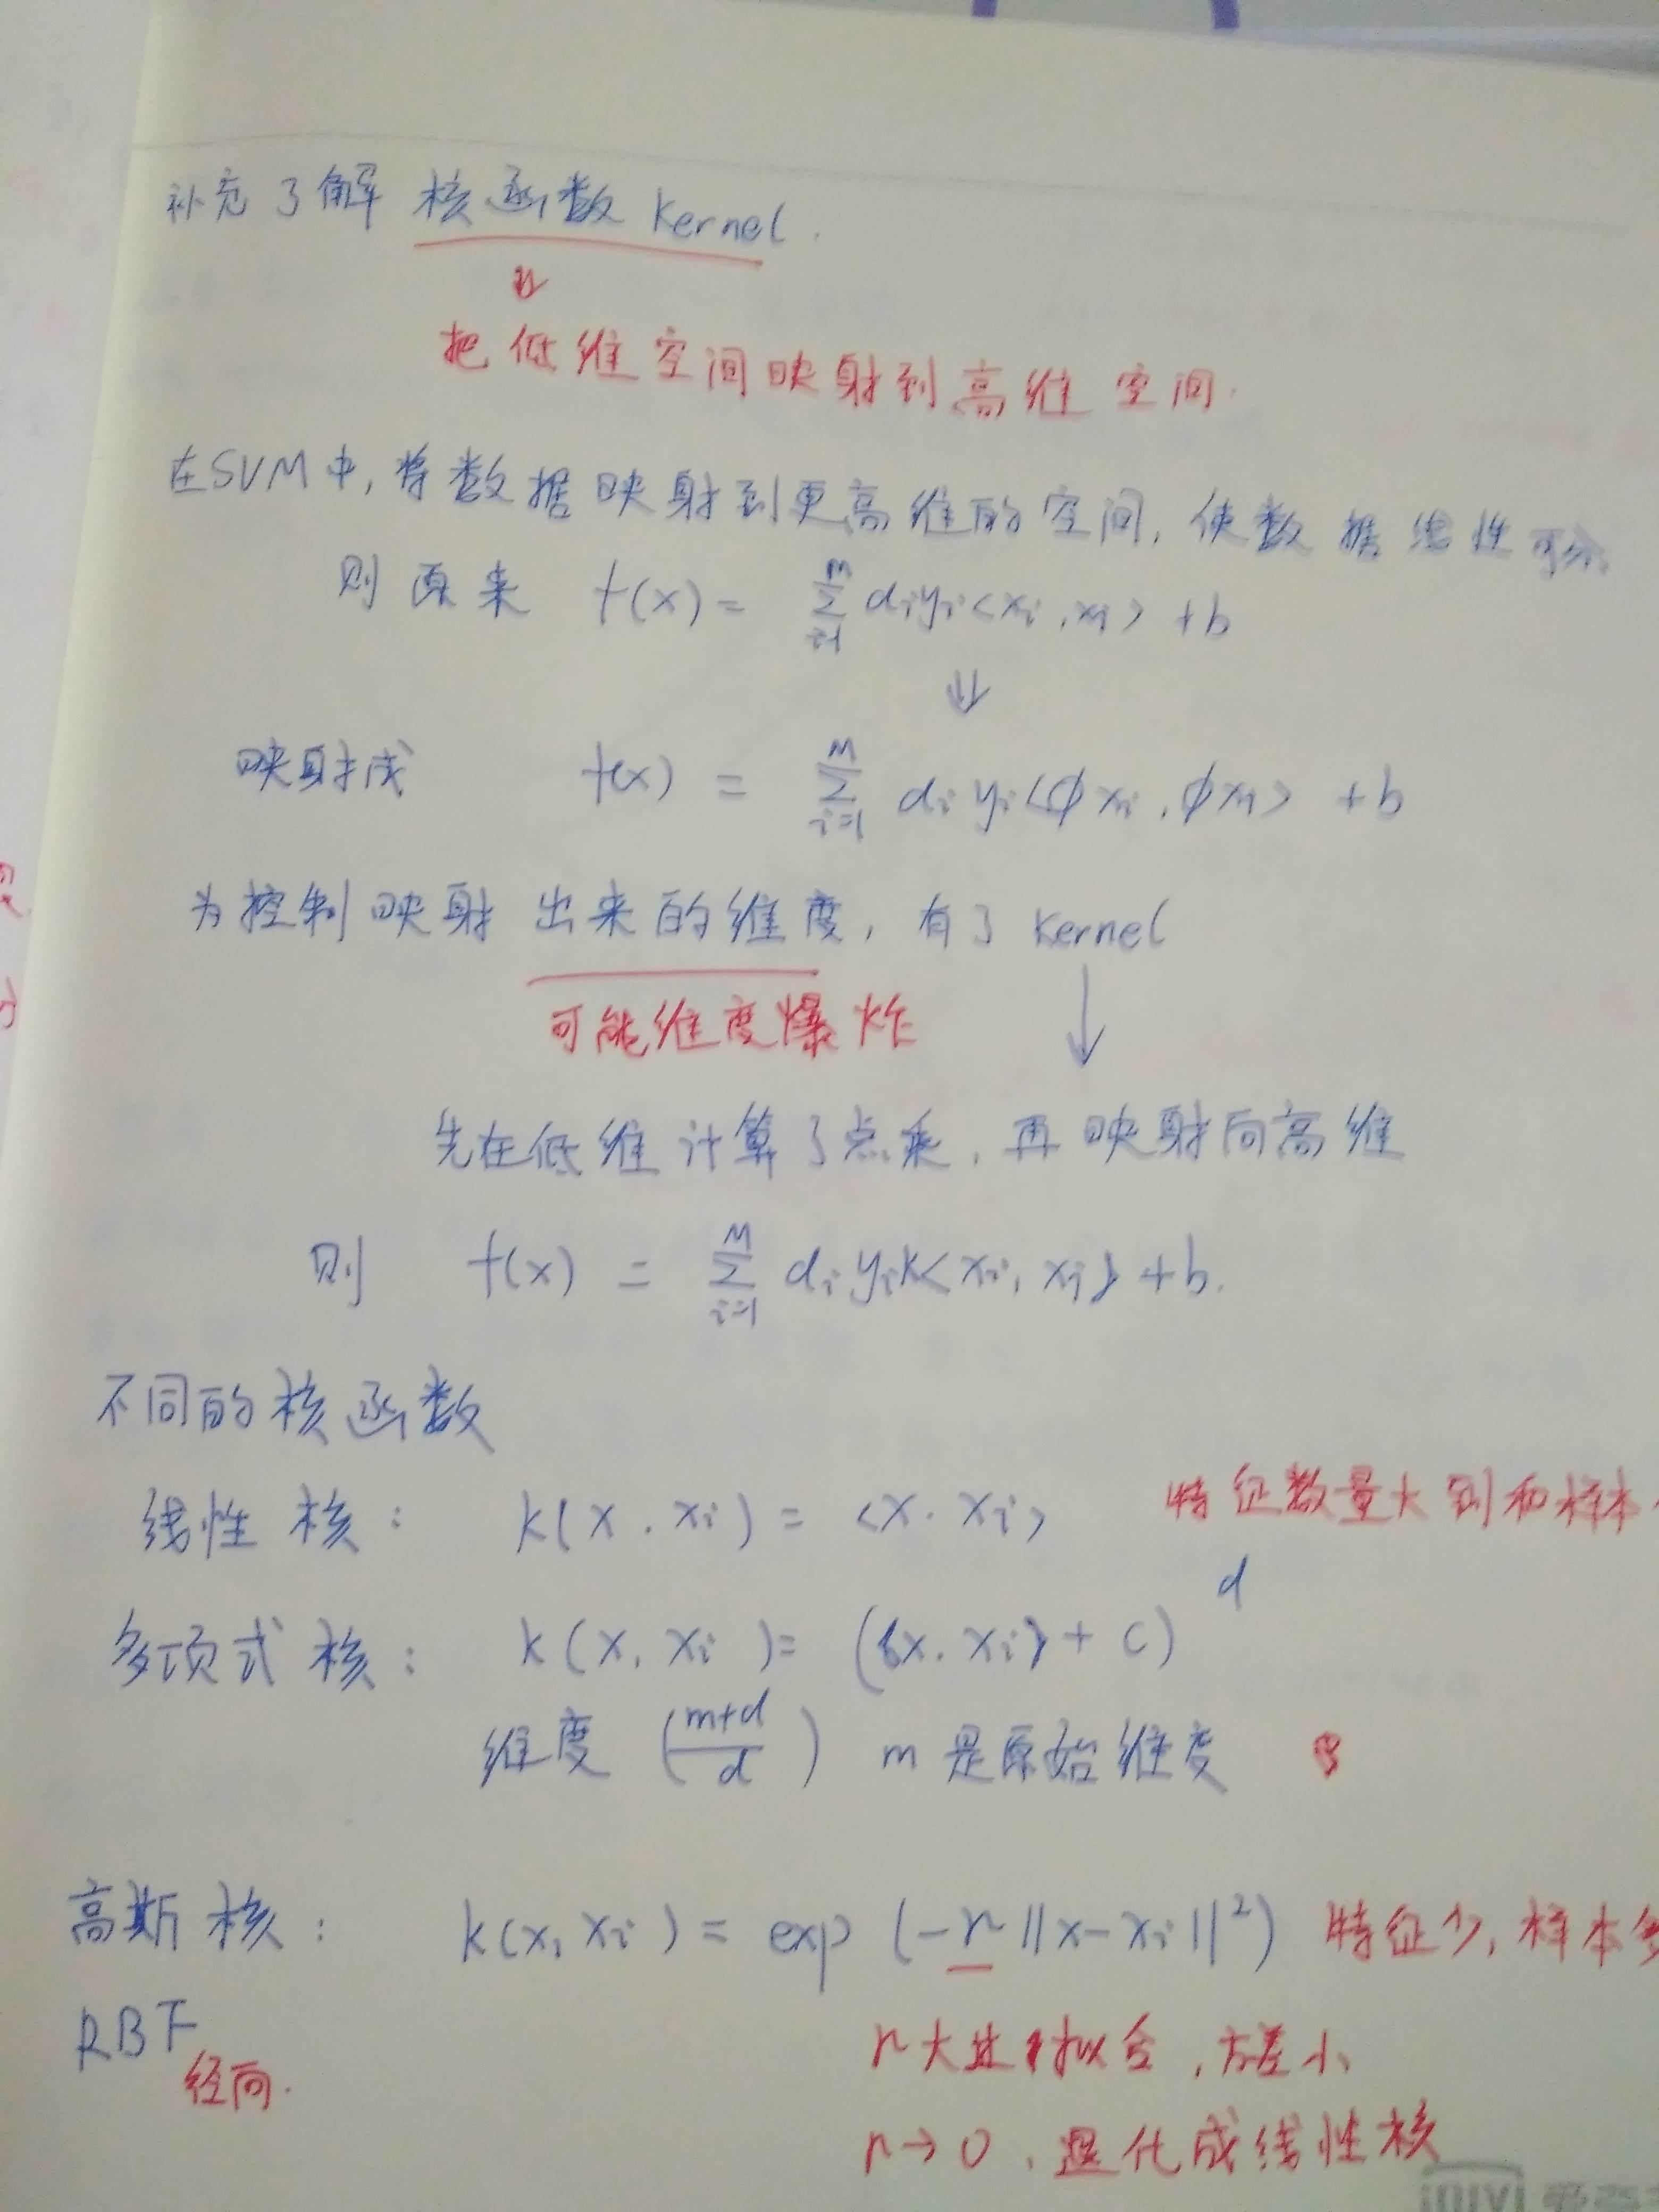 补充了解 核函数 kernel.
把低维空间映射到高维空间.
在SVM中,将数据映射到更高维的空间,使数据线性可分
则原来 f(x) = Σ_{i=1}^{m} αi yi <xi, xj> + b
⇓
映射成 f(x) = Σ_{i=1}^{m} αi yi <ϕxi, ϕxj> + b
为控制映射出来的维度,有了kernel
可能维度爆炸
↓
先在低维计算了点乘,再映射向高维
则 f(x) = Σ_{i=1}^{m} αi yi k<xi, xj> + b.
不同的核函数
线性核: k(x. xi) = <x. xi> 特征数量大到和样本
多项式核: k(x, xi) = (<x. xi> + c)^d
维度 (m+d / d) m是原始维度
高斯核: k(x, xi) = exp (-r ||x-xi||²) 特征少,样本多
RBF
径向.
r大过拟合,方差小
r→0,退化成线性核
QIYI